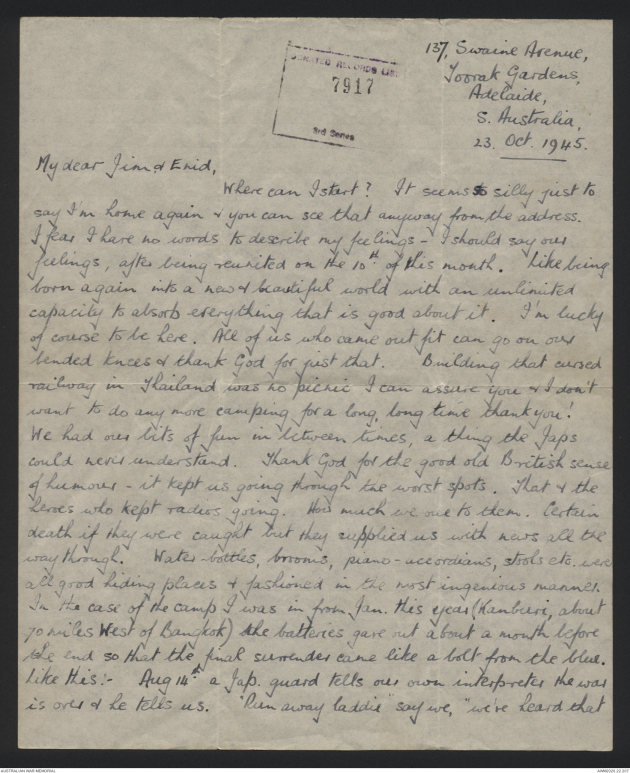 137, Swaine Avenue,
Toorak Gardens,
Adelaide,
S. Australia,
23. Oct. 1945.
DONATED RECORDS LIST
7917
3rd Series
My dear Jim & Enid,
Where can I start? It seems so silly just to
say I'm home again & you can see that anyway from the address.
I fear I have no words to describe my feelings – I should say our
feelings, after being reunited on the 10th of this month. Like being
born again into a new & beautiful world with an unlimited
capacity to absorb everything that is good about it. I'm lucky
of course to be here. All of us who came out fit can go on our
bended knees & thank God for just that. Building that cursed
railway in Thailand was no picnic I can assure you & I don't
want to do any more camping for a long, long time thank you!
We had our bits of fun in between times, a thing the Japs
could never understand. Thank God for the good old British sense
of humour – it kept us going through the worst spots. That & the
heroes who kept radios going. How much we owe to them. Certain
death if they were caught but they supplied us with news all the
way through. Water-bottles, brooms, piano-accordians, stools etc. were
all good hiding places & fashioned in the most ingenious manner.
In the case of the camp I was in from Jan. this year (Kanburi, about
70 miles West of Bangkok) the batteries gave out about a month before
the end so that the final surrender came like a bolt from the blue.
Like this:- Aug 14th a Jap. guard tells our own interpreter the war
is over & he tells us. "Run away laddie" say we, "we've heard that
AUSTRALIAN WAR MEMORIAL